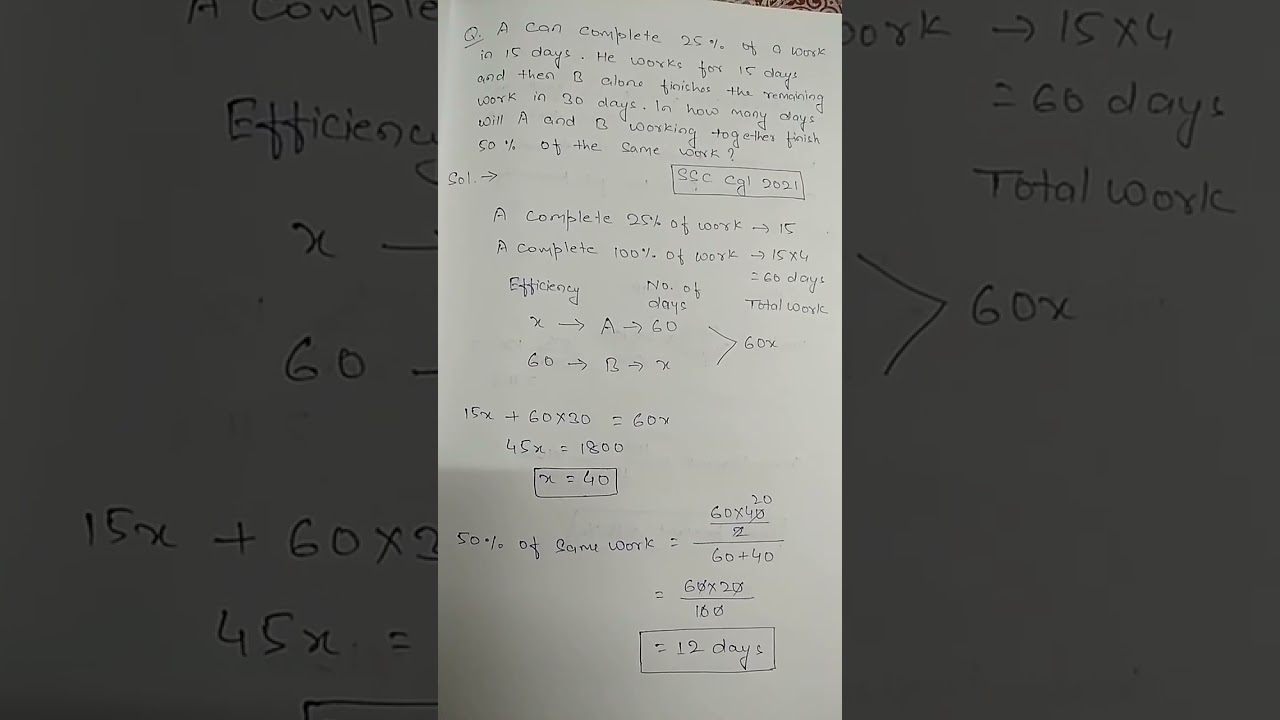 Q. A can complete 25% of a work
in 15 days. He works for 15 days
and then B alone finishes the remaining
work in 30 days. In how many days
will A and B working together finish
50% of the same work?
Sol. →
SSC Cgl 2021
A complete 25% of work → 15
A complete 100% of work → 15×4
= 60 days
Efficiency No. of days Total work
x → A → 60
60x
60 → B → x
15x + 60×30 = 60x
45x = 1800
x = 40
50% of same work = (60×40/2)/(60+40)
20
= 60×20/100
= 12 days
A comple
ork → 15×4
= 60 days
Efficiency
Total work
x
60x
60
15x + 60×3
45x =